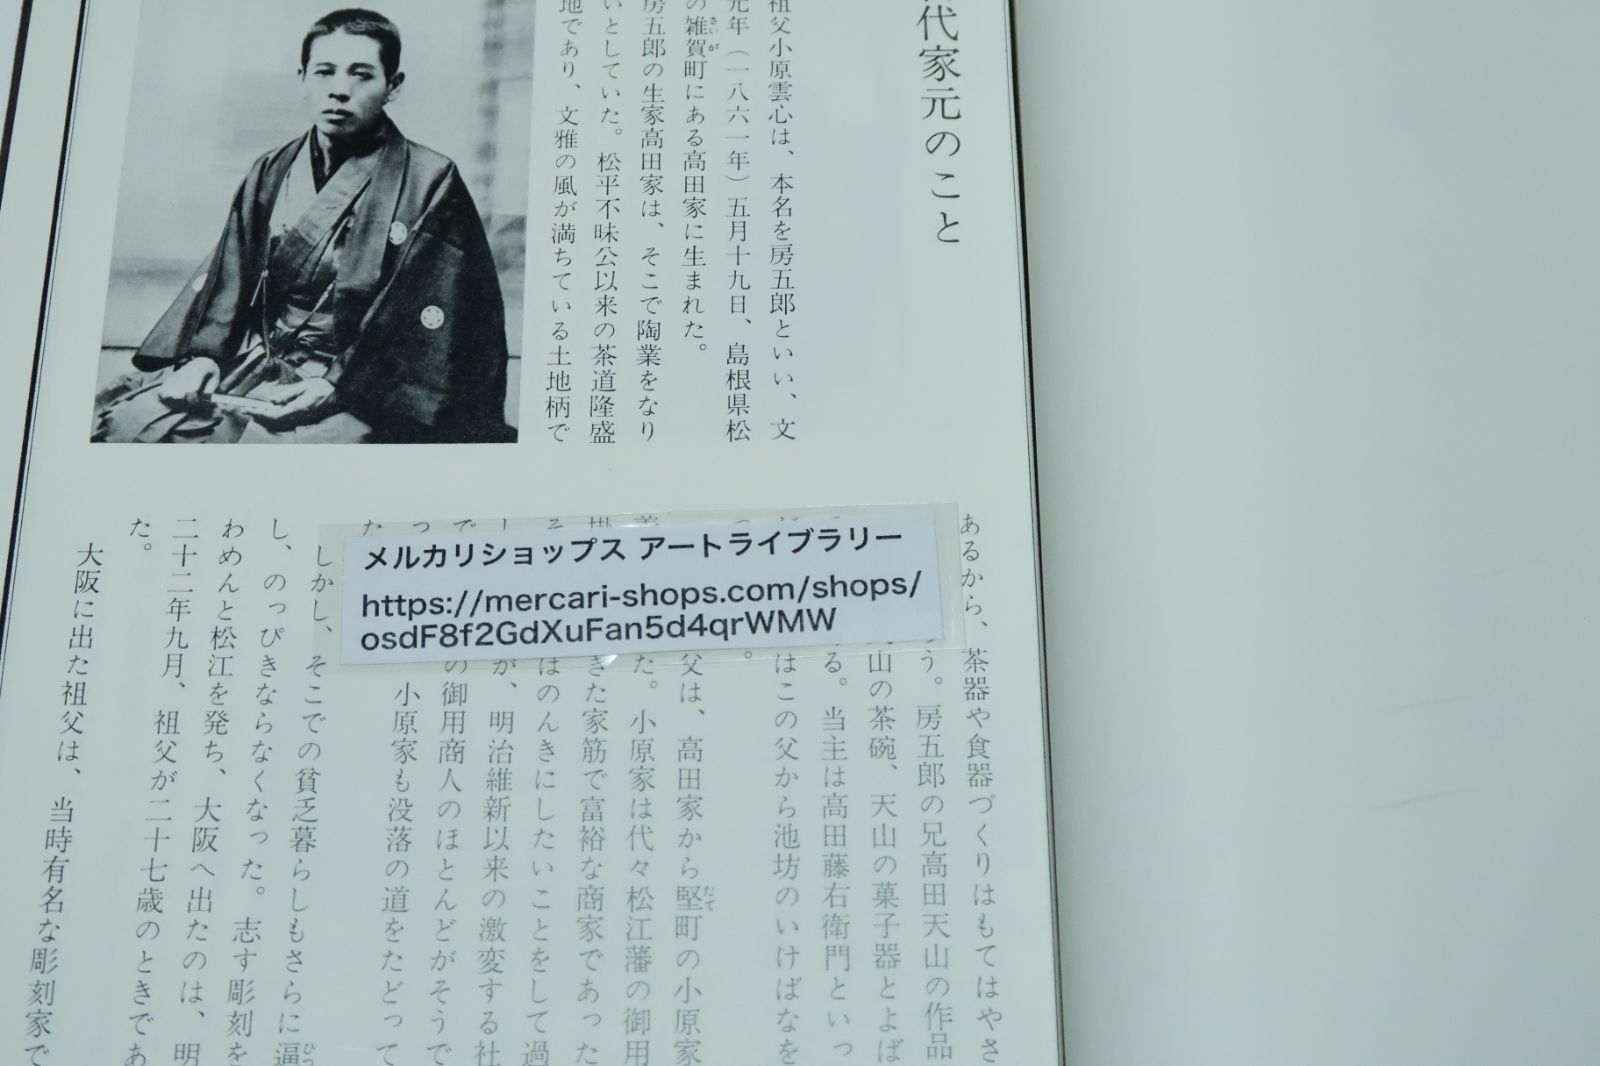 代家元のこと
祖父小原雲心は、本名を房五郎といい、文
元年（一八六一年）五月十九日、島根県松
の雑賀町にある高田家に生まれた。
さいが
房五郎の生家高田家は、そこで陶業をなり
いとしていた。松平不昧公以来の茶道隆盛
地であり、文雅の風が満ちている土地柄で
あるから、茶器や食器づくりはもてはやさ
う。房五郎の兄高田天山の作品
山の茶碗、天山の菓子器とよば
る。当主は高田藤右衛門といっ
はこの父から池坊のいけばなを
。
父は、高田家から堅町の小原家
たて
た。小原家は代々松江藩の御用
きた家筋で富裕な商家であった
はのんきにしたいことをして過
が、明治維新以来の激変する社
の御用商人のほとんどがそうで
小原家も没落の道をたどって
た
しかし、そこでの貧乏暮らしもさらに逼
ひっ
し、のっぴきならなくなった。志す彫刻を
わめんと松江を発ち、大阪へ出たのは、明
二十二年九月、祖父が二十七歳のときであ
た。
大阪に出た祖父は、当時有名な彫刻家で
メルカリショップス アートライブラリー
https://mercari-shops.com/shops/
osdF8f2GdXuFan5d4qrWMW